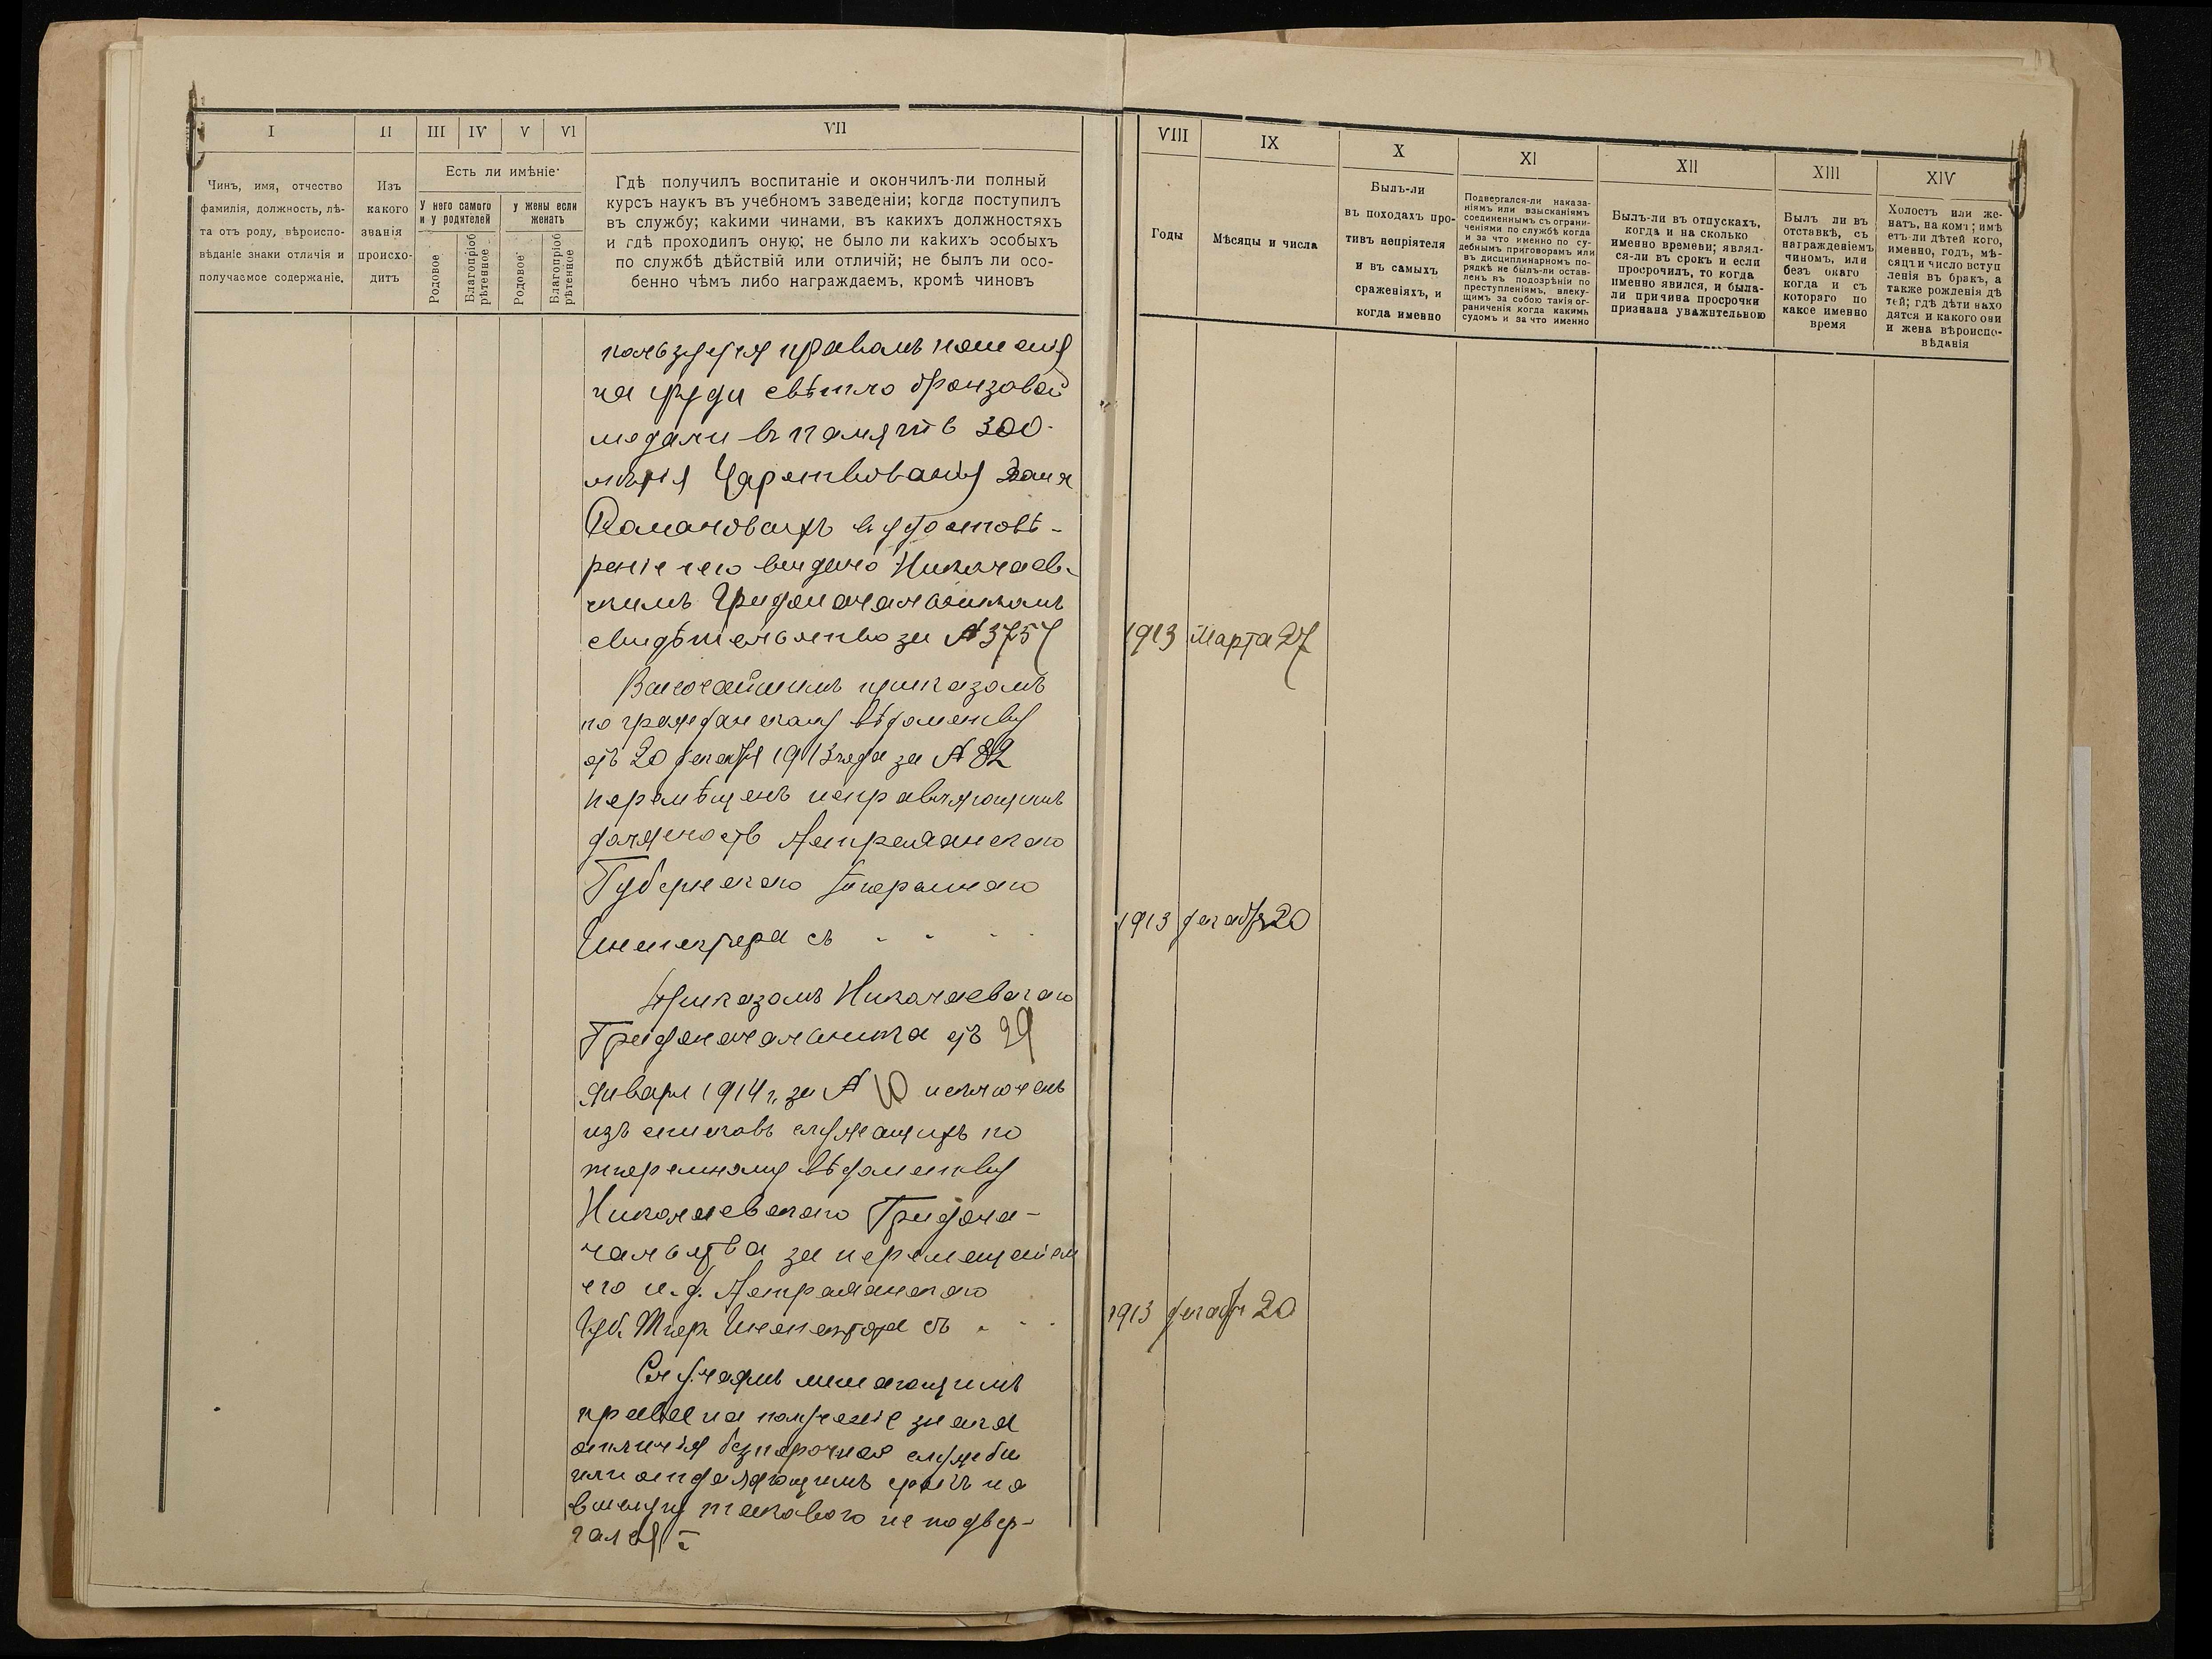 I II III IV V VI VII
Чинъ, имя, отчество
фамилія, должность, лѣ-
та отъ роду, вѣроиспо-
вѣданіе знаки отлачія и
получаемое содержаніе.
Изъ
какого
званія
происхо-
дитъ
Есть ли имѣніе
У него самого
и у родителей
у жены если
женатъ
Родовое
Благопріоб
рѣтенное
Родовое
Благопріоб
рѣтенное
Гдѣ получилъ воспитаніе и окончилъ-ли полный
курсъ наукъ въ учебномъ заведеніи; когда поступилъ
въ службу; какими чинами, въ какихъ должностяхъ
и гдѣ проходилъ оную; не было ли какихъ особыхъ
по службѣ дѣйствій или отличій; не былъ ли осо-
бенно чѣмъ либо награждаемъ, кромѣ чиновъ
пользуется правомъ ношенія
на груди свѣтло бронзовой
медали въ память 300-
лѣтія Царствованія Дома
Романовыхъ въ удостовѣ-
реніе чего выдано Николаев-
скимъ Градоначальникомъ
свидѣтельство за № 3757
Высочайшимъ приказомъ
по гражданскому вѣдомству
отъ 20 декабря 1913 года за № 82
перемѣщенъ исправляющимъ
должность Астраханского
Губернскаго Тюремнаго
Инспектора съ
Приказомъ Николаевскаго
Градоначальника отъ 29
Января 1914 г. за № 10 исключенъ
изъ списковъ служащихъ по
тюремному вѣдомству
Николаевскаго Градона-
чальства за перемещением
его и. д. Астраханскаго
Губ. Тюр. Инспектора съ
Случаямъ лишающимъ
права на полученіе знака
отличія безпорочная службы
или отдаляющимъ срокъ на
выслугу таковаго не подвер-
гался
VIII IX X XI XII XIII XIV
Годы
Мѣсяцы и числа
Былъ-ли
въ походахъ про-
тивъ непріятеля
и въ самыхъ
сраженіяхъ, и
когда именно
Подвергался-ли наказа-
ніямъ или взысканіямъ
соединеннымъ съ ограни-
ченіями по службѣ когда
и за что именно по су-
дебнымъ приговорамъ или
въ дисциплинарномъ по-
рядкѣ не былъ-ли остав-
ленъ въ подозрѣніи по
преступленіямъ, влеку-
щимъ за собою такія ог-
раниченія когда какимъ
судомъ и за что именно
Былъ-ли въ отпускахъ,
когда и на сколько
именно времени; являл-
ся-ли въ срокъ и если
просрочилъ, то когда
именно явился, и была-
ли причина просрочки
признана уважительною
Былъ ли въ
отставкѣ, съ
награжденіемъ
чиномъ, или
безъ онаго
когда и съ
котораго по
какое именно
время
Холостъ или же-
натъ, на комъ; имѣ
етъ-ли дѣтей кого,
именно, годъ, мѣ-
сяцъ и число вступ
ленія въ бракъ, а
также рожденія дѣ
тей; гдѣ дѣти нахо
дятся и какого они
и жена вѣроиспо-
вѣданія
1913 Марта 27
1913 декабря 20
1913 декабря 20